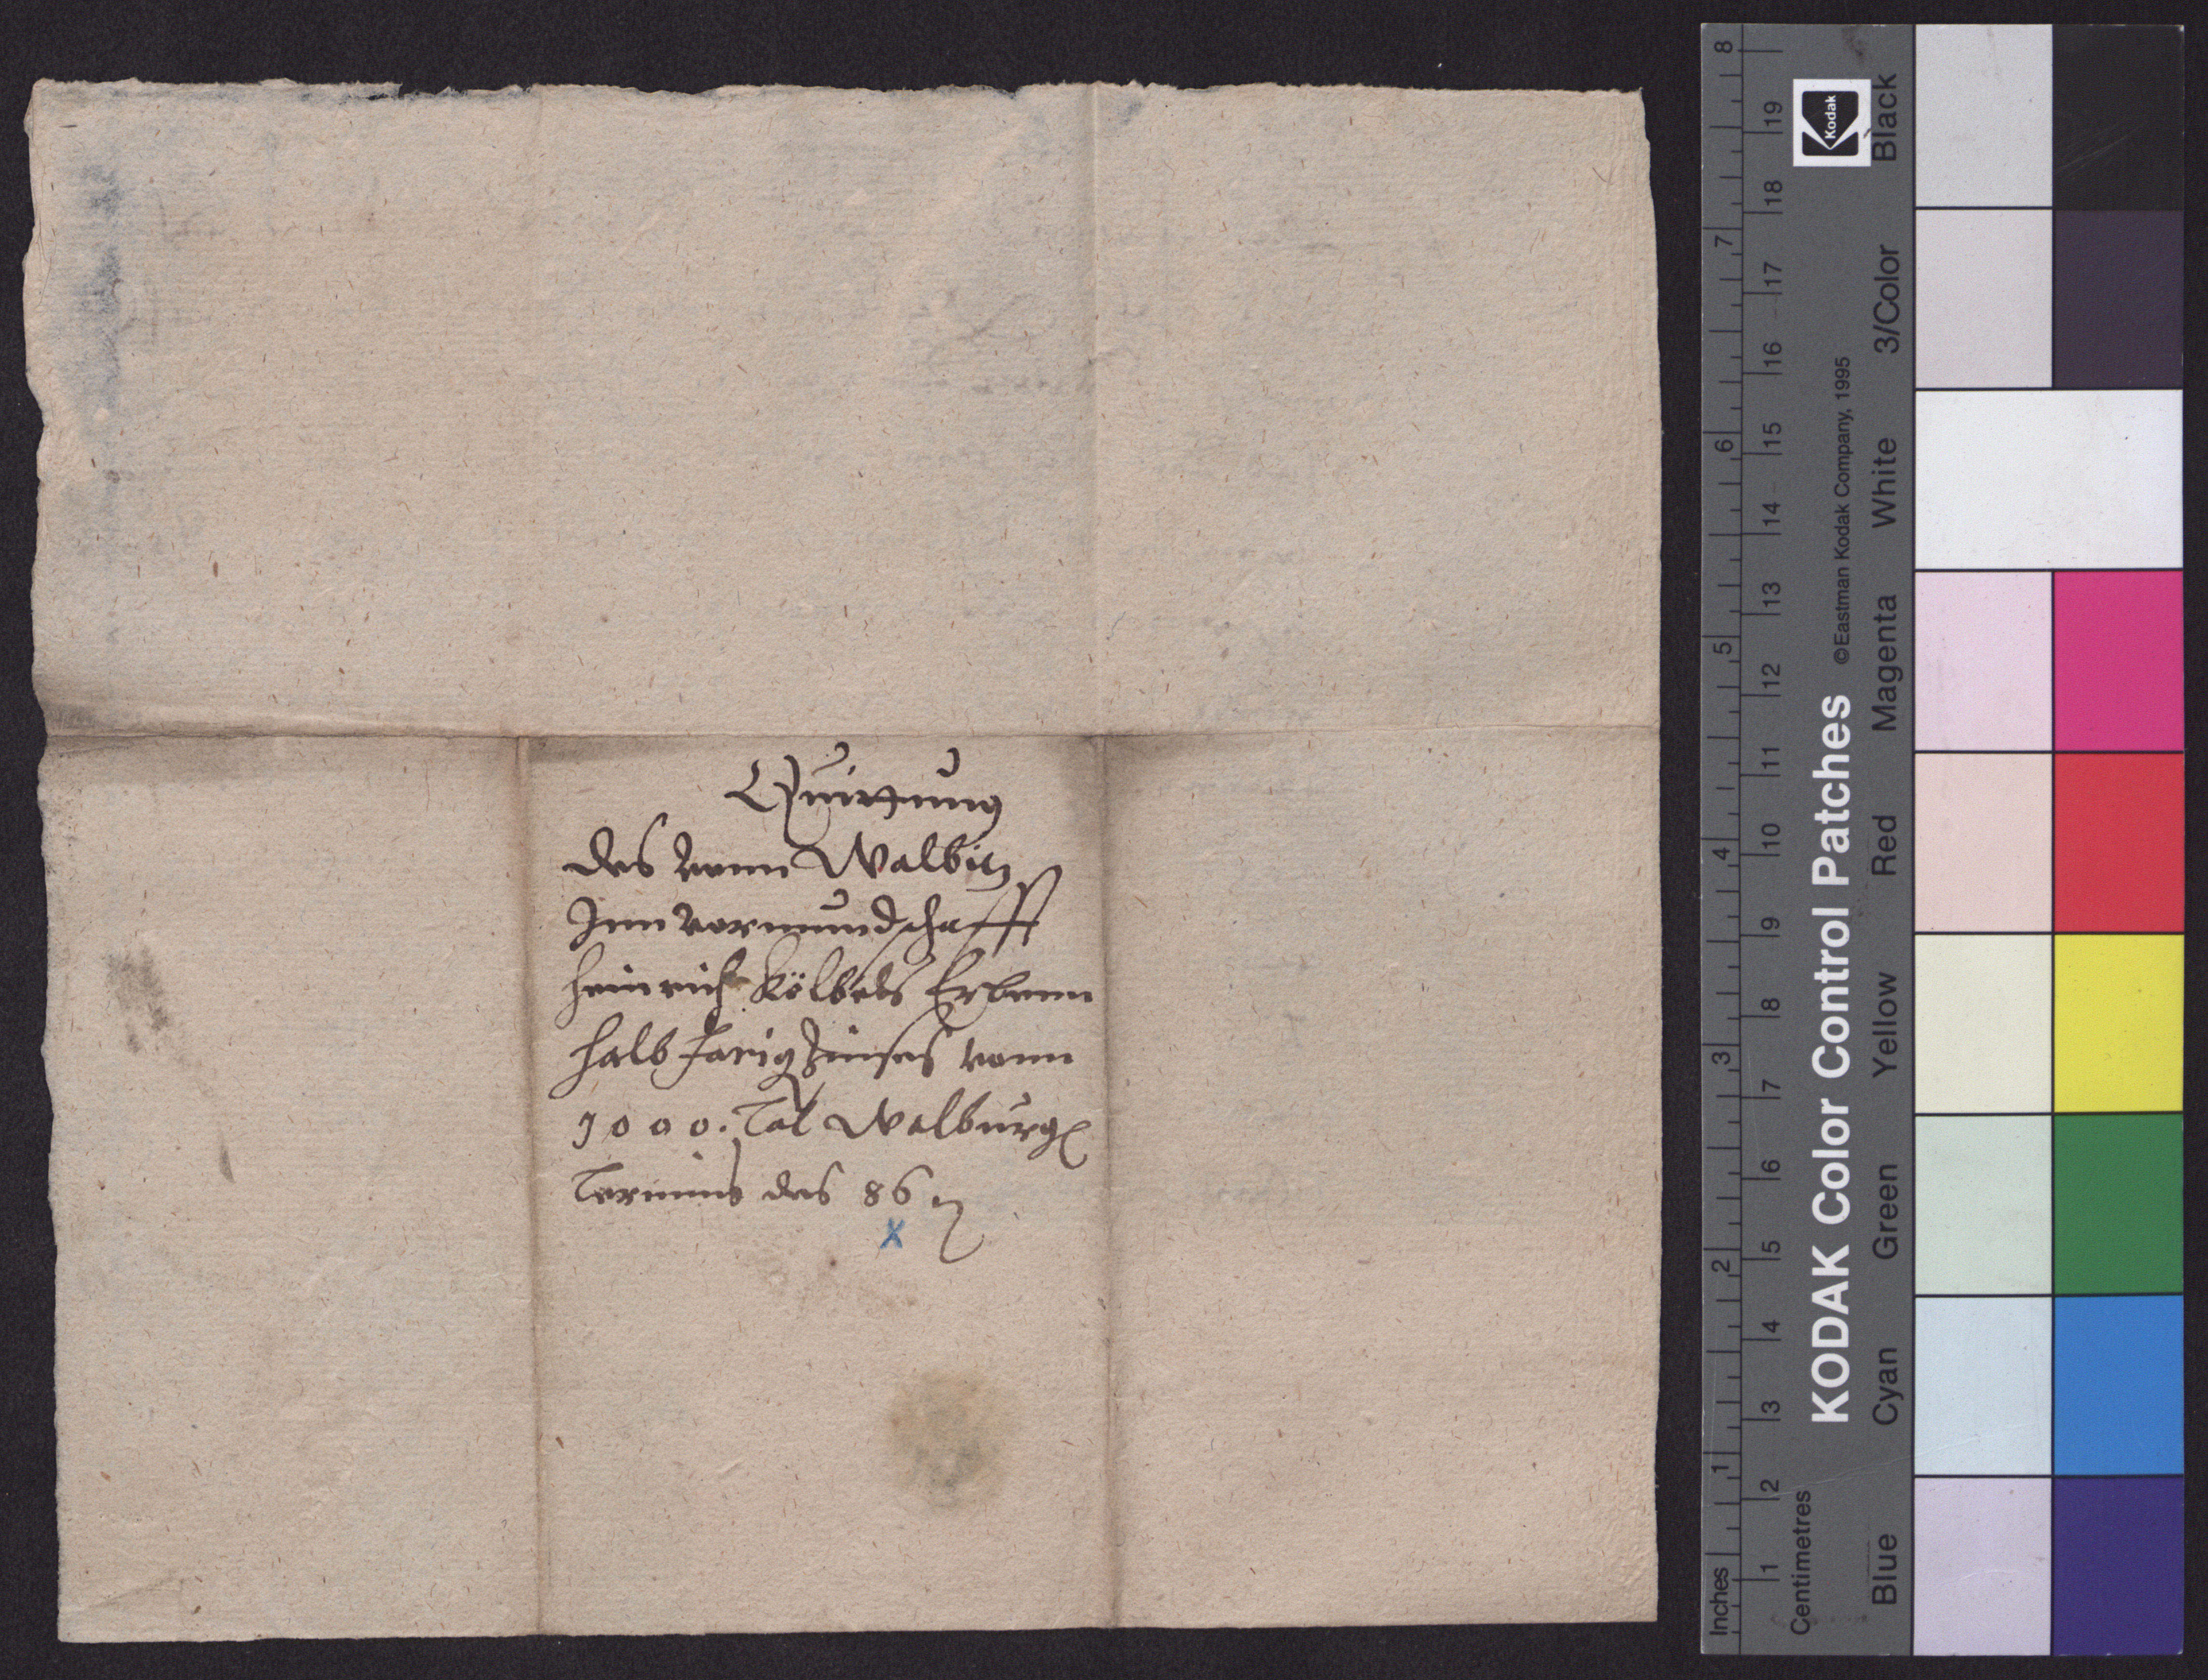 Quittung
des vonn Walbitz
Inn vormundschafft
Heinrich Kölbels Erbenn
halb Jarig Zinses vonn
1000. Tal Walburg
Termins des 86
x
KODAK Color Control Patches ©Eastman Kodak Company, 1995
Kodak
Blue Cyan Green Yellow Red Magenta White 3/Color Black
Inches 1 2 3 4 5 6 7 8
Centimetres 1 2 3 4 5 6 7 8 9 10 11 12 13 14 15 16 17 18 19